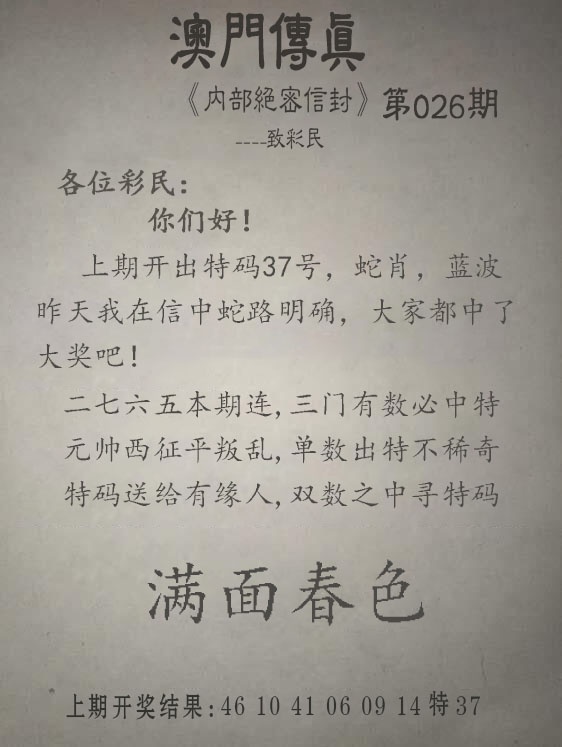 澳門傳眞
《内部絕密信封》第026期
----致彩民
各位彩民:
你们好!
上期开出特码37号，蛇肖，蓝波
昨天我在信中蛇路明确，大家都中了
大奖吧!
二七六五本期连,三门有数必中特
元帅西征平叛乱,单数出特不稀奇
特码送给有缘人,双数之中寻特码
满面春色
上期开奖结果:46 10 41 06 09 14 特 37